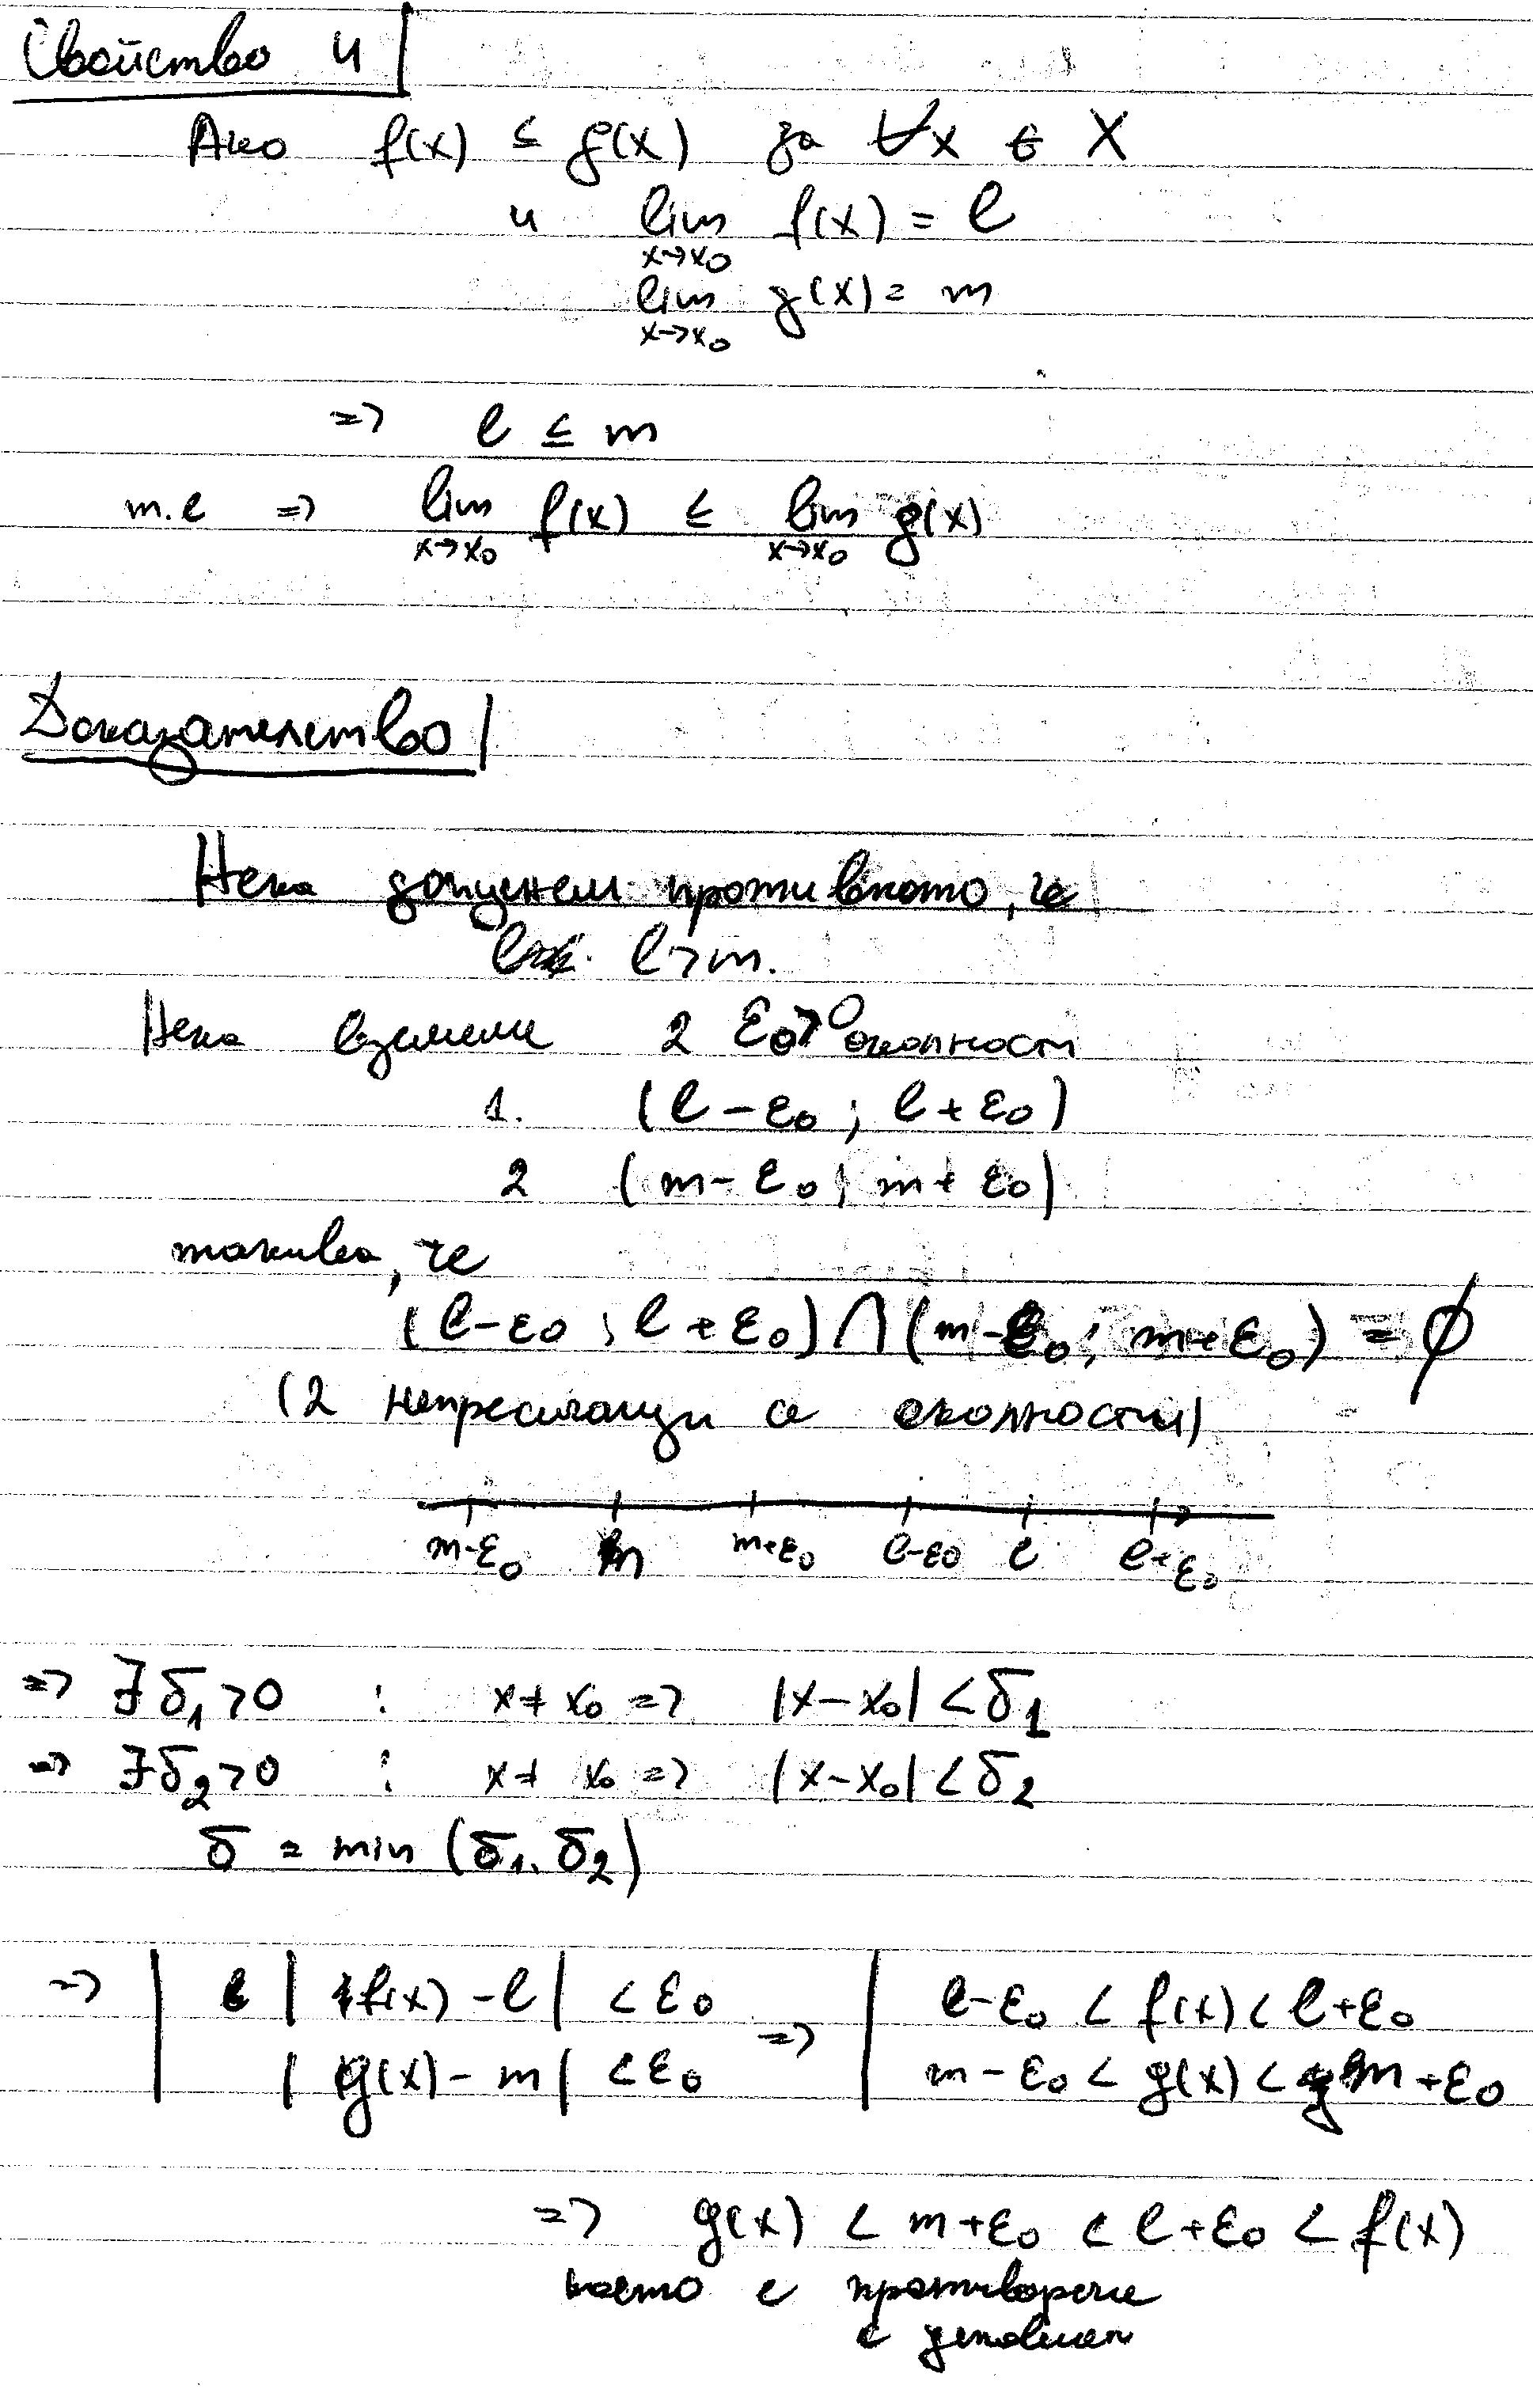 Свойство 4
Ако f(x) ≤ g(x) за ∀x ∈ X
и lim f(x) = l
x→x₀
lim g(x) = m
x→x₀
=> l ≤ m
т.е => lim f(x) ≤ lim g(x)
x→x₀ x→x₀
Доказателство
Нека допуснем противното, че
l>m.
Нека вземем 2 ε₀>0 околност
1. (l-ε₀; l+ε₀)
2 (m-ε₀; m+ε₀)
такива, че
(l-ε₀; l+ε₀)∩(m-ε₀; m+ε₀) = ∅
(2 непресичащи се околности)
m-ε₀ m m+ε₀ l-ε₀ l l+ε₀
=> ∃δ₁>0 : x≠x₀ => |x-x₀|<δ₁
=> ∃δ₂>0 : x≠x₀ => |x-x₀|<δ₂
δ = min (δ₁, δ₂)
=> | |f(x)-l| <ε₀ => | l-ε₀ < f(x) < l+ε₀
| |g(x)-m| <ε₀ | m-ε₀ < g(x) < m+ε₀
=> g(x) < m+ε₀ < l+ε₀ < f(x)
което е противоречие
с условието